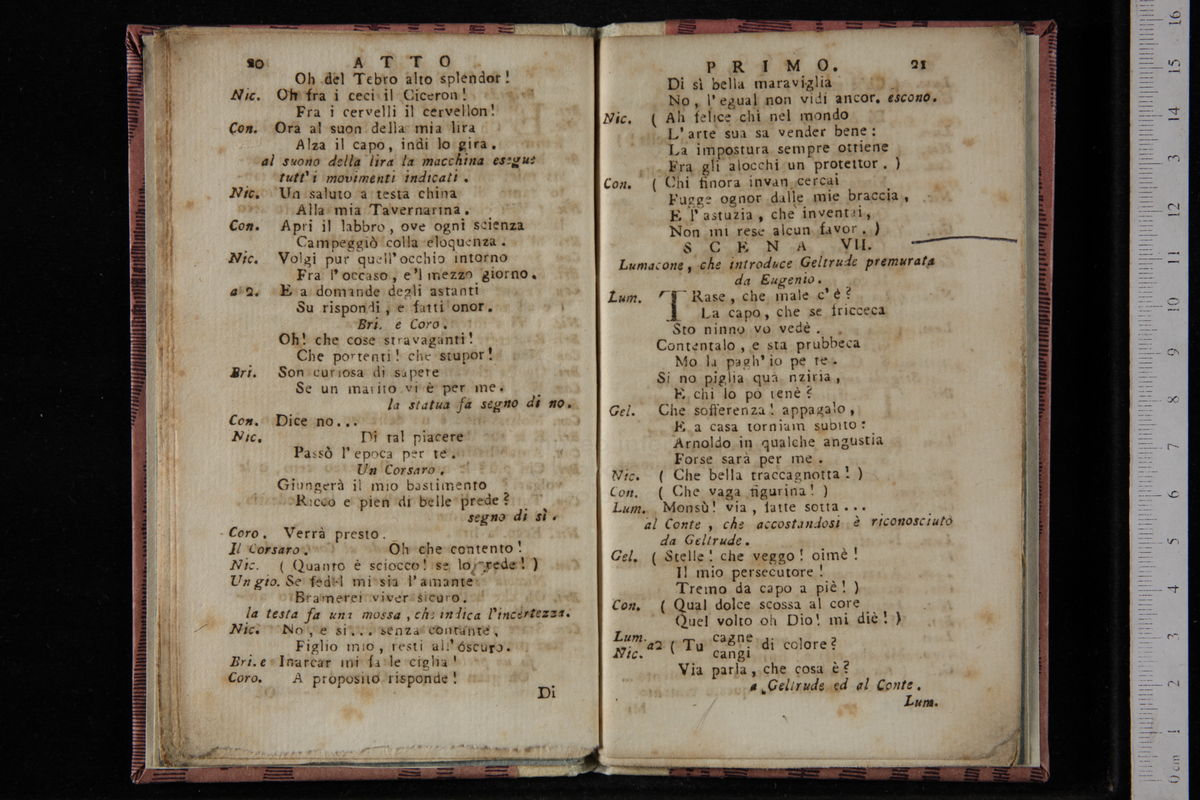 20 ATTO
Oh del Tebro alto splendor!
Nic. Oh fra i ceci il Ciceron!
Fra i cervelli il cervellon!
Con. Ora al suon della mia lira
Alza il capo, indi lo gira.
al suono della lira la macchina esegue
tutt' i movimenti indicati.
Nic. Un saluto a testa china
Alla mia Tavernarina.
Con. Apri il labbro, ove ogni scienza
Campeggiò colla eloquenza.
Nic. Volgi pur quell'occhio intorno
Fra l'occaso, e'l mezzo giorno.
a 2. E a domande degli astanti
Su rispondi, e fatti onor.
Bri. e Coro.
Oh! che cose stravaganti!
Che portenti! che stupor!
Bri. Son curiosa di sapere
Se un marito vi è per me.
la statua fa segno di no.
Con. Dice no...
Nic. Di tal piacere
Passò l'epoca per te.
Un Corsaro.
Giungerà il mio bastimento
Ricco e pien di belle prede?
segno di sì.
Coro. Verrà presto.
Il Corsaro. Oh che contento!
Nic. (Quanto è sciocco! se lo crede!)
Un gio. Se fedel mi sia l'amante
Bramerei viver sicuro.
la testa fa una mossa, che indica l'incertezza.
Nic. No, e si... senza contante,
Figlio mio, resti all'oscuro.
Bri. e Inarcar mi fa le ciglia!
Coro. A proposito risponde!
Di
PRIMO. 21
Di sì bella maraviglia
No, l'egual non vidi ancor. escono.
Nic. (Ah felice chi nel mondo
L'arte sua sa vender bene:
La impostura sempre ottiene
Fra gli alocchi un protettor.)
Con. (Chi finora invan cercai
Fugge ognor dalle mie braccia,
E l'astuzia, che inventai,
Non mi rese alcun favor.)
SCENA VII.
Lumacone, che introduce Geltrude premurata
da Eugenio.
Lum. TRase, che male c'è?
La capo, che se friccеca
Sto ninno vo vedè.
Contentalo, e sta prubbeca
Mo la pagh'io pe te.
Si no piglia qua nziria,
E chi lo po tenè?
Gel. Che sofferenza! appagalo,
E a casa torniam subito:
Arnoldo in qualche angustia
Forse sarà per me.
Nic. (Che bella traccagnotta!)
Con. (Che vaga figurina!)
Lum. Monsù! via, fatte sotta...
al Conte, che accostandosi è riconosciuto
da Geltrude.
Gel. (Stelle! che veggo! oimè!
Il mio persecutore!
Tremo da capo a piè!)
Con. (Qual dolce scossa al core
Quel volto oh Dio! mi diè!)
Lum. cagne
a2 (Tu di colore?
Nic. cangi
Via parla, che cosa è?
a Geltrude ed al Conte.
Lum.